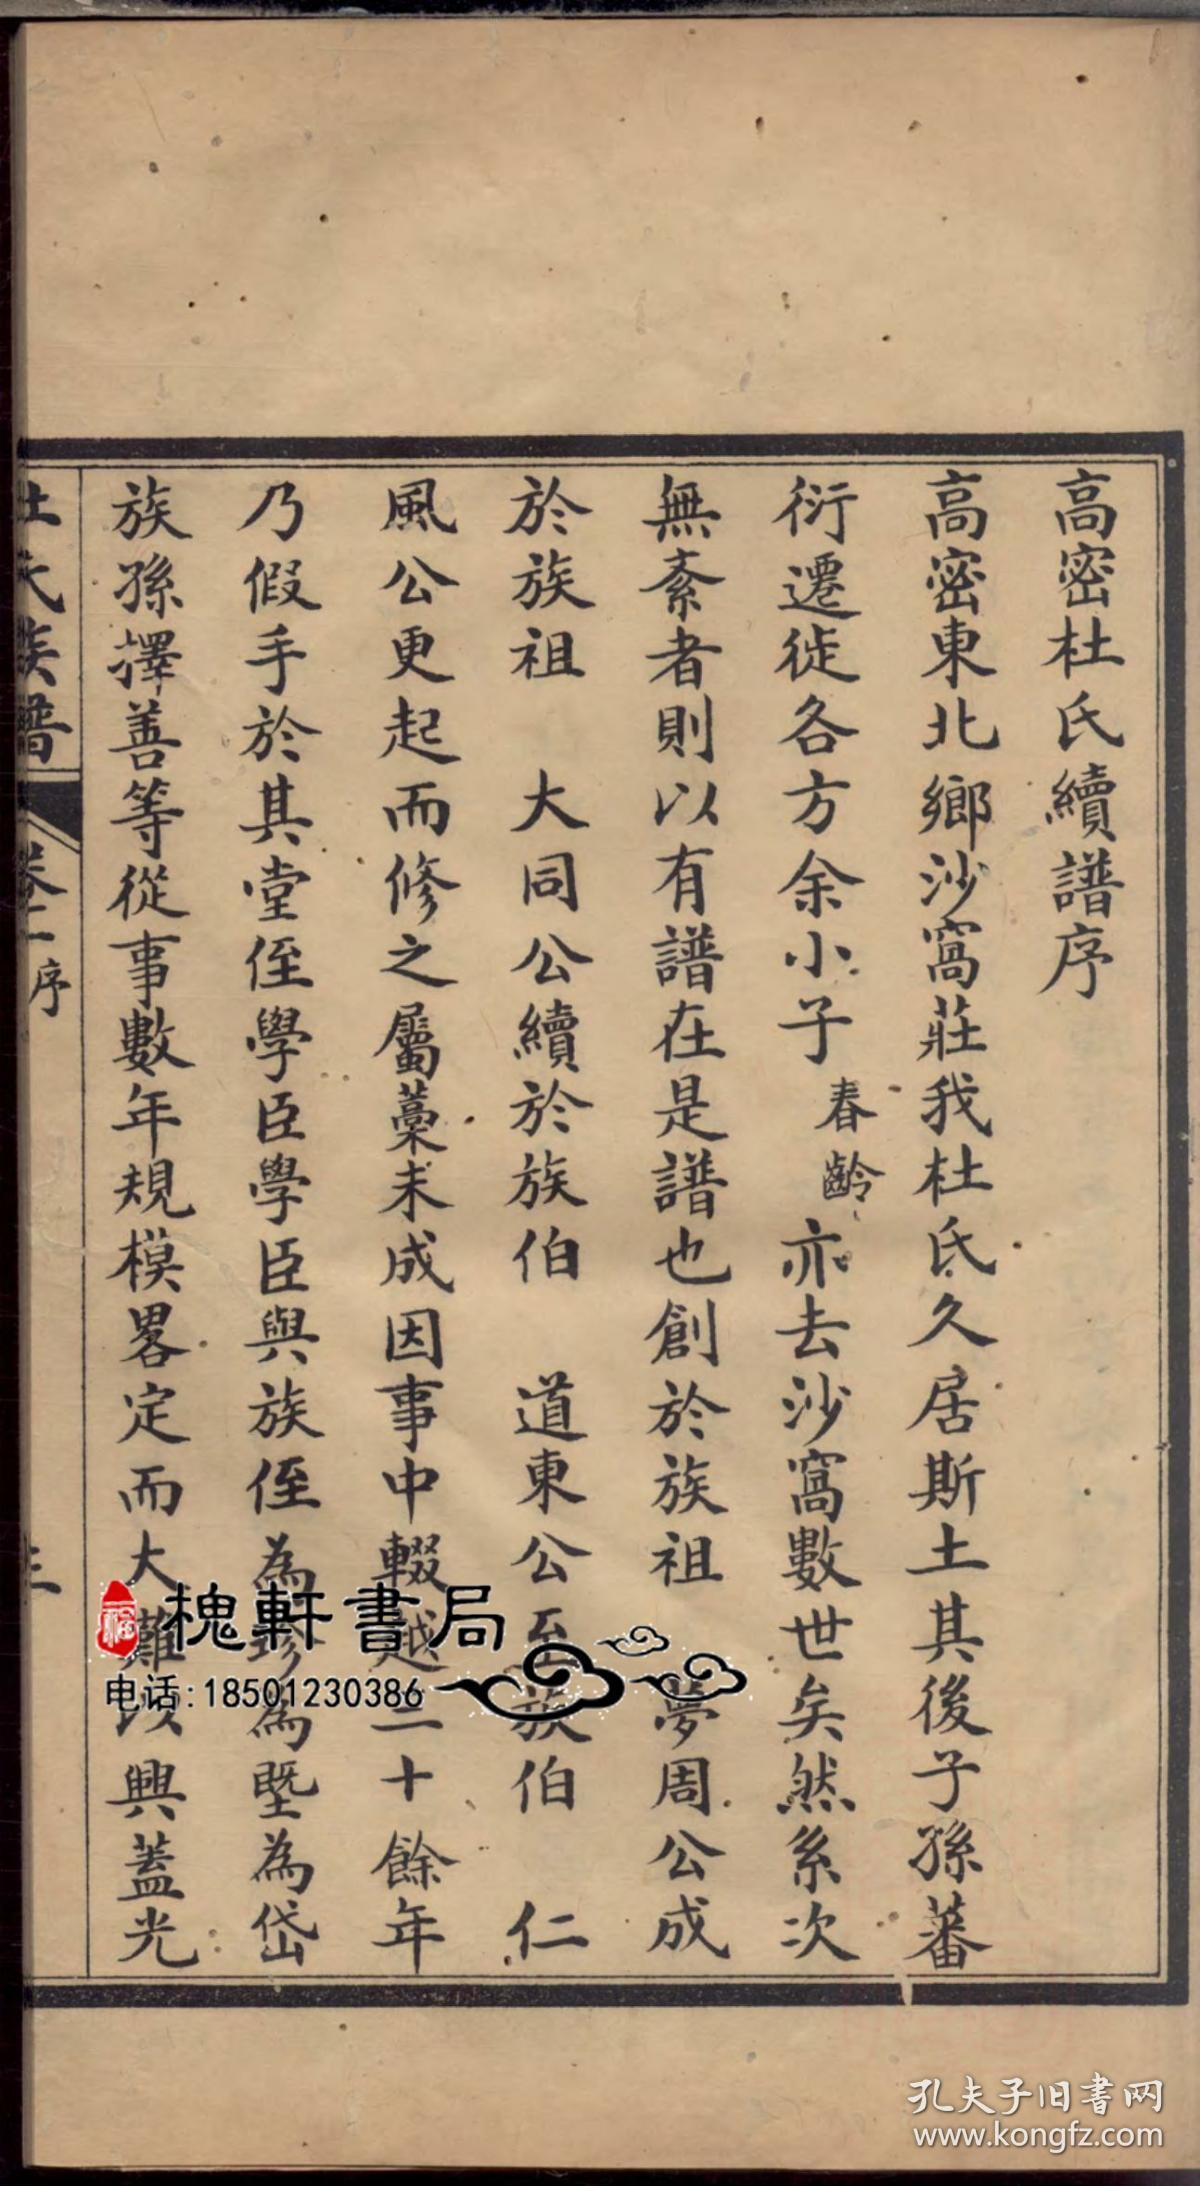 高密杜氏續譜序
高密東北鄉沙窩莊我杜氏久居斯土其後子孫蕃
衍遷徙各方余小子春齡亦去沙窩數世矣然系次
無紊者則以有譜在是譜也創於族祖 夢周公成
於族祖 大同公續於族伯 道東公至族伯 仁
風公更起而修之屬藁未成因事中輟越二十餘年
乃假手於其堂侄學臣學臣與族侄為珍為塈為岱
族孫擇善等從事數年規模畧定而大難以興蓋光
杜氏族譜 卷一 序 三
槐軒書局
电话:18501230386
孔夫子旧书网
www.kongfz.com